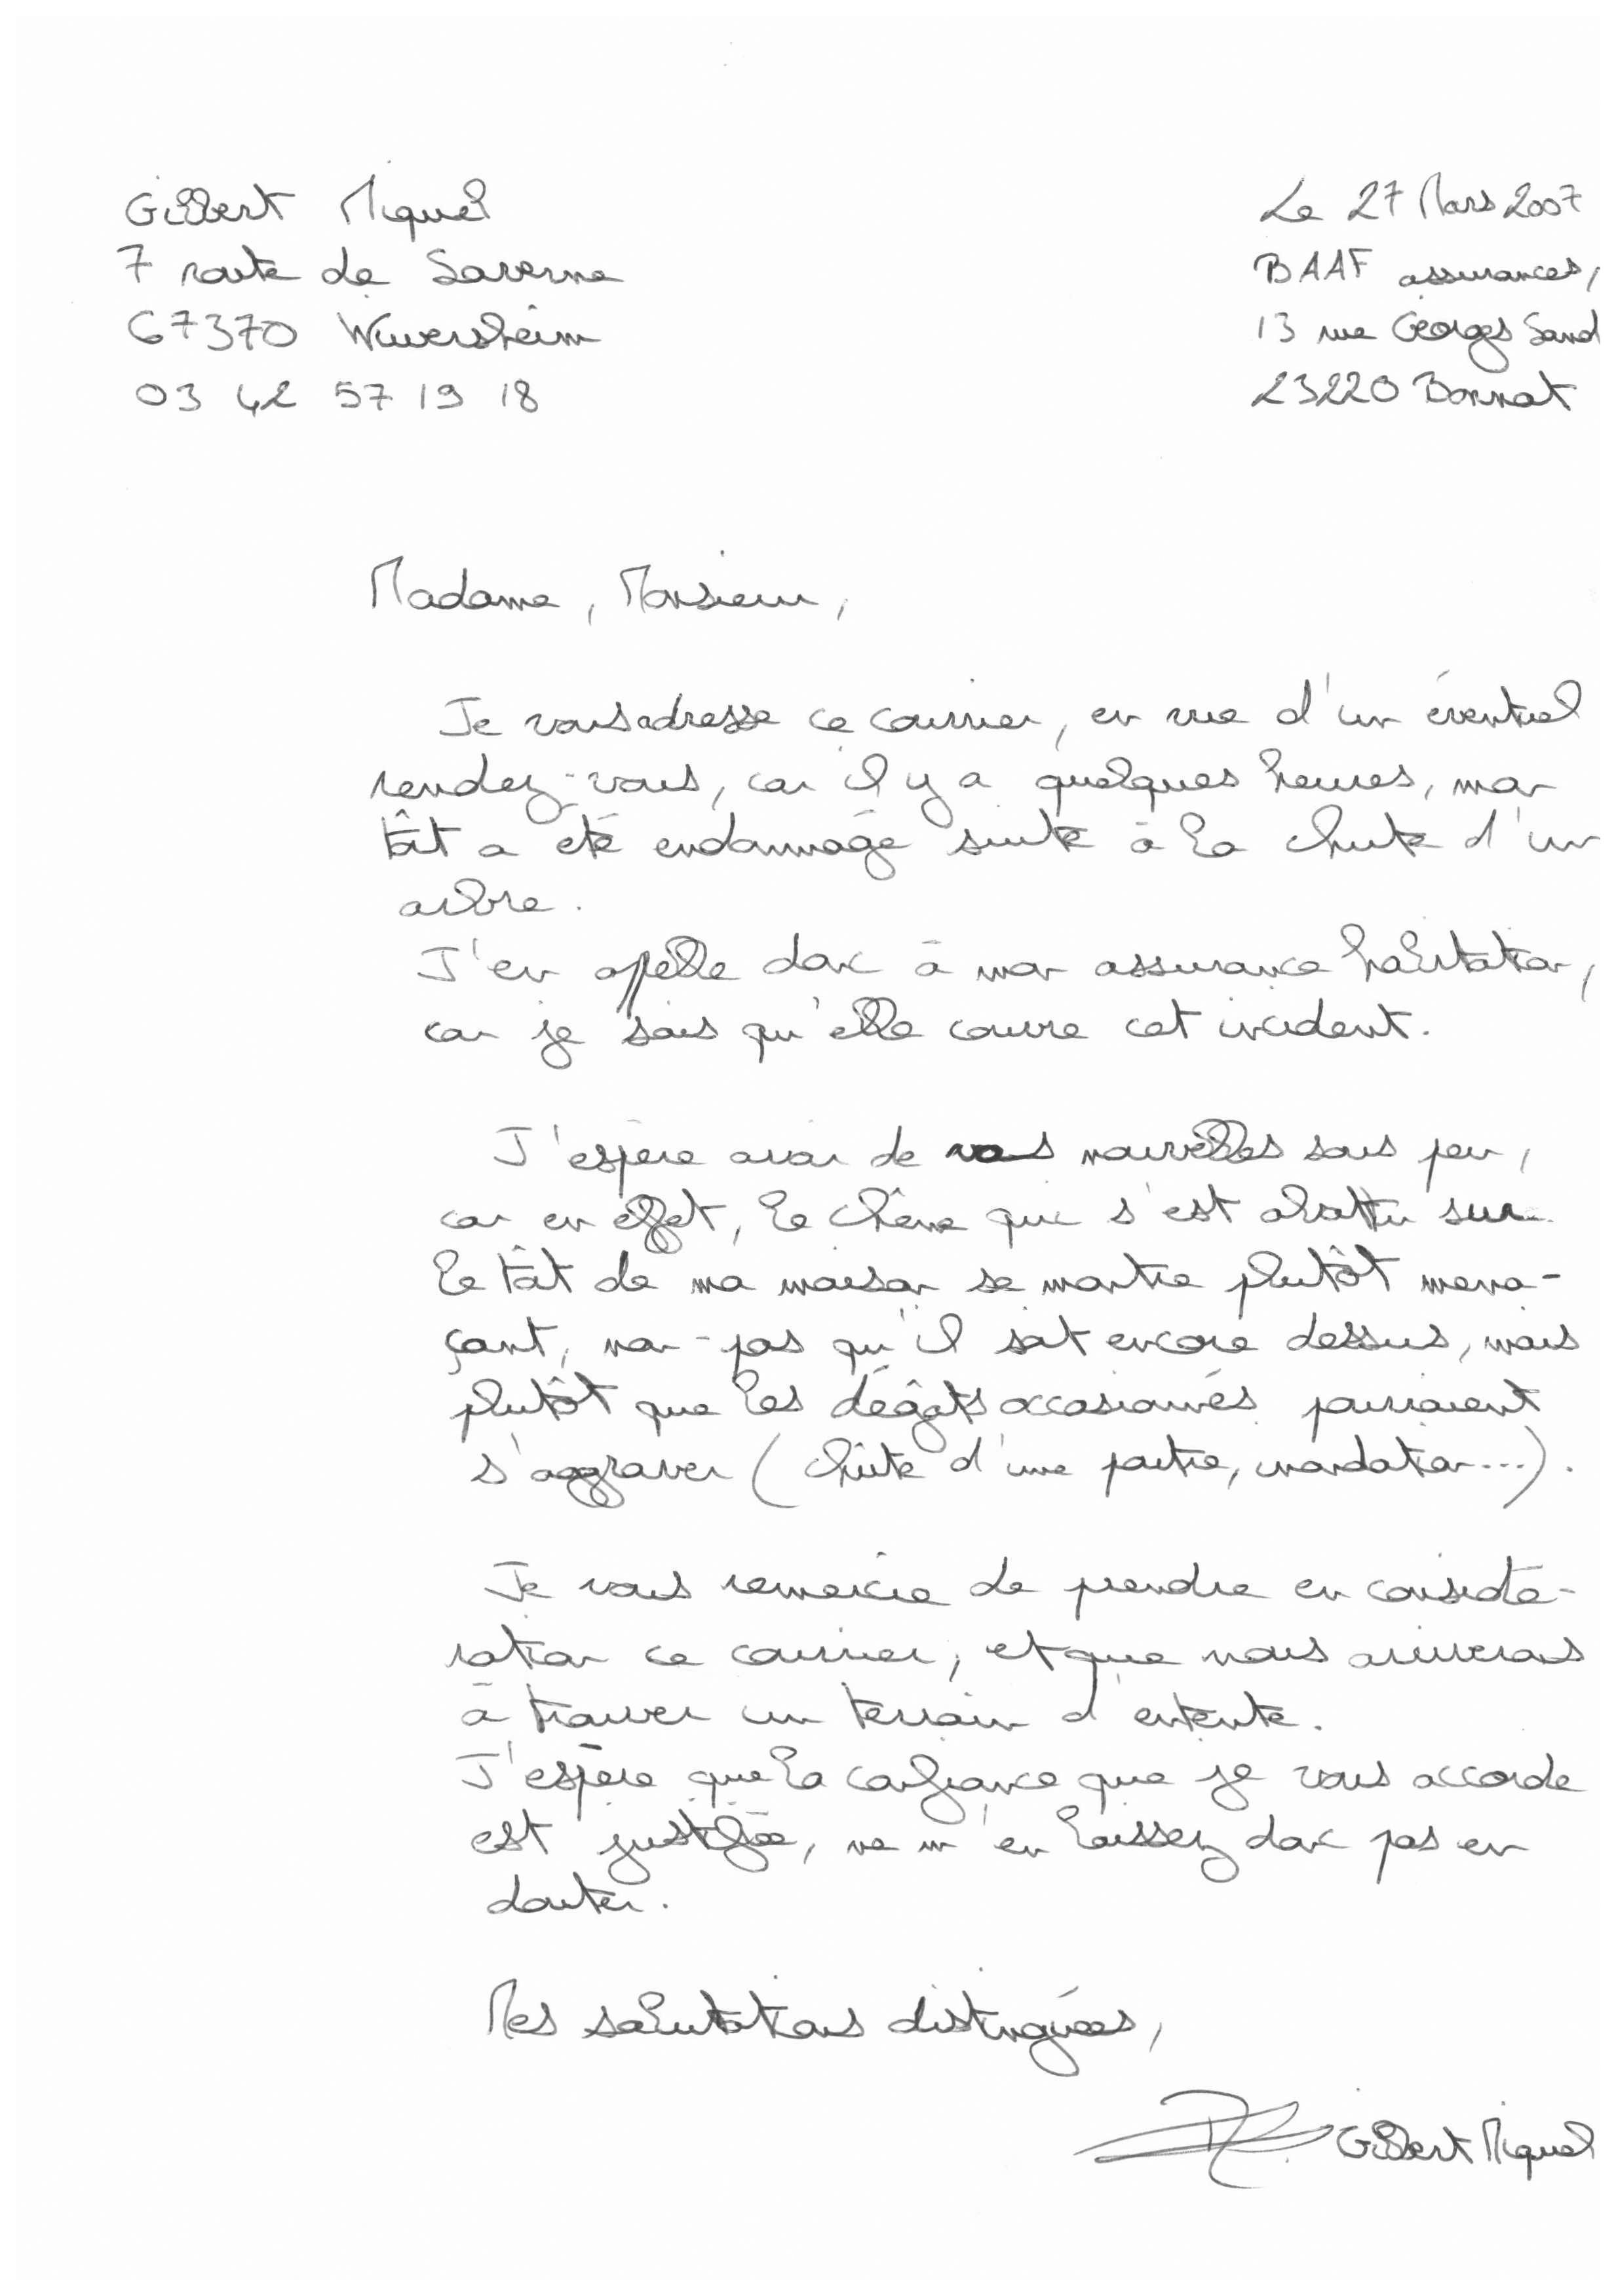 Gilbert Miquel
7 route de Saverne
67370 Wiwersheim
03 42 57 19 18
Le 27 Mars 2007
BAAF assurances,
13 rue Georges Sand
23220 Bonnat
Madame, Monsieur,
Je vous adresse ce courrier, en vue d'un éventuel
rendez-vous, car il y a quelques heures, mon
toît a été endommagé suite à la chute d'un
arbre.
J'en appelle donc à mon assurance habitation,
car je sais qu'elle couvre cet incident.
J'espère avoir de vos nouvelles sous peu,
car en effet, le chêne qui s'est abattu sur
le toît de ma maison se montre plutôt mena-
çant, non-pas qu'il soit encore dessus, mais
plutôt que les dégâts occasionnés pourraient
s'aggraver (chûte d'une partie, inondation...).
Je vous remercie de prendre en considé-
ration ce courrier, et que nous arriverons
à trouver un terrain d'entente.
J'espère que la confiance que je vous accorde
est justifiée, ne m'en laissez donc pas en
douter.
Mes salutations distinguées,
Gilbert Miquel